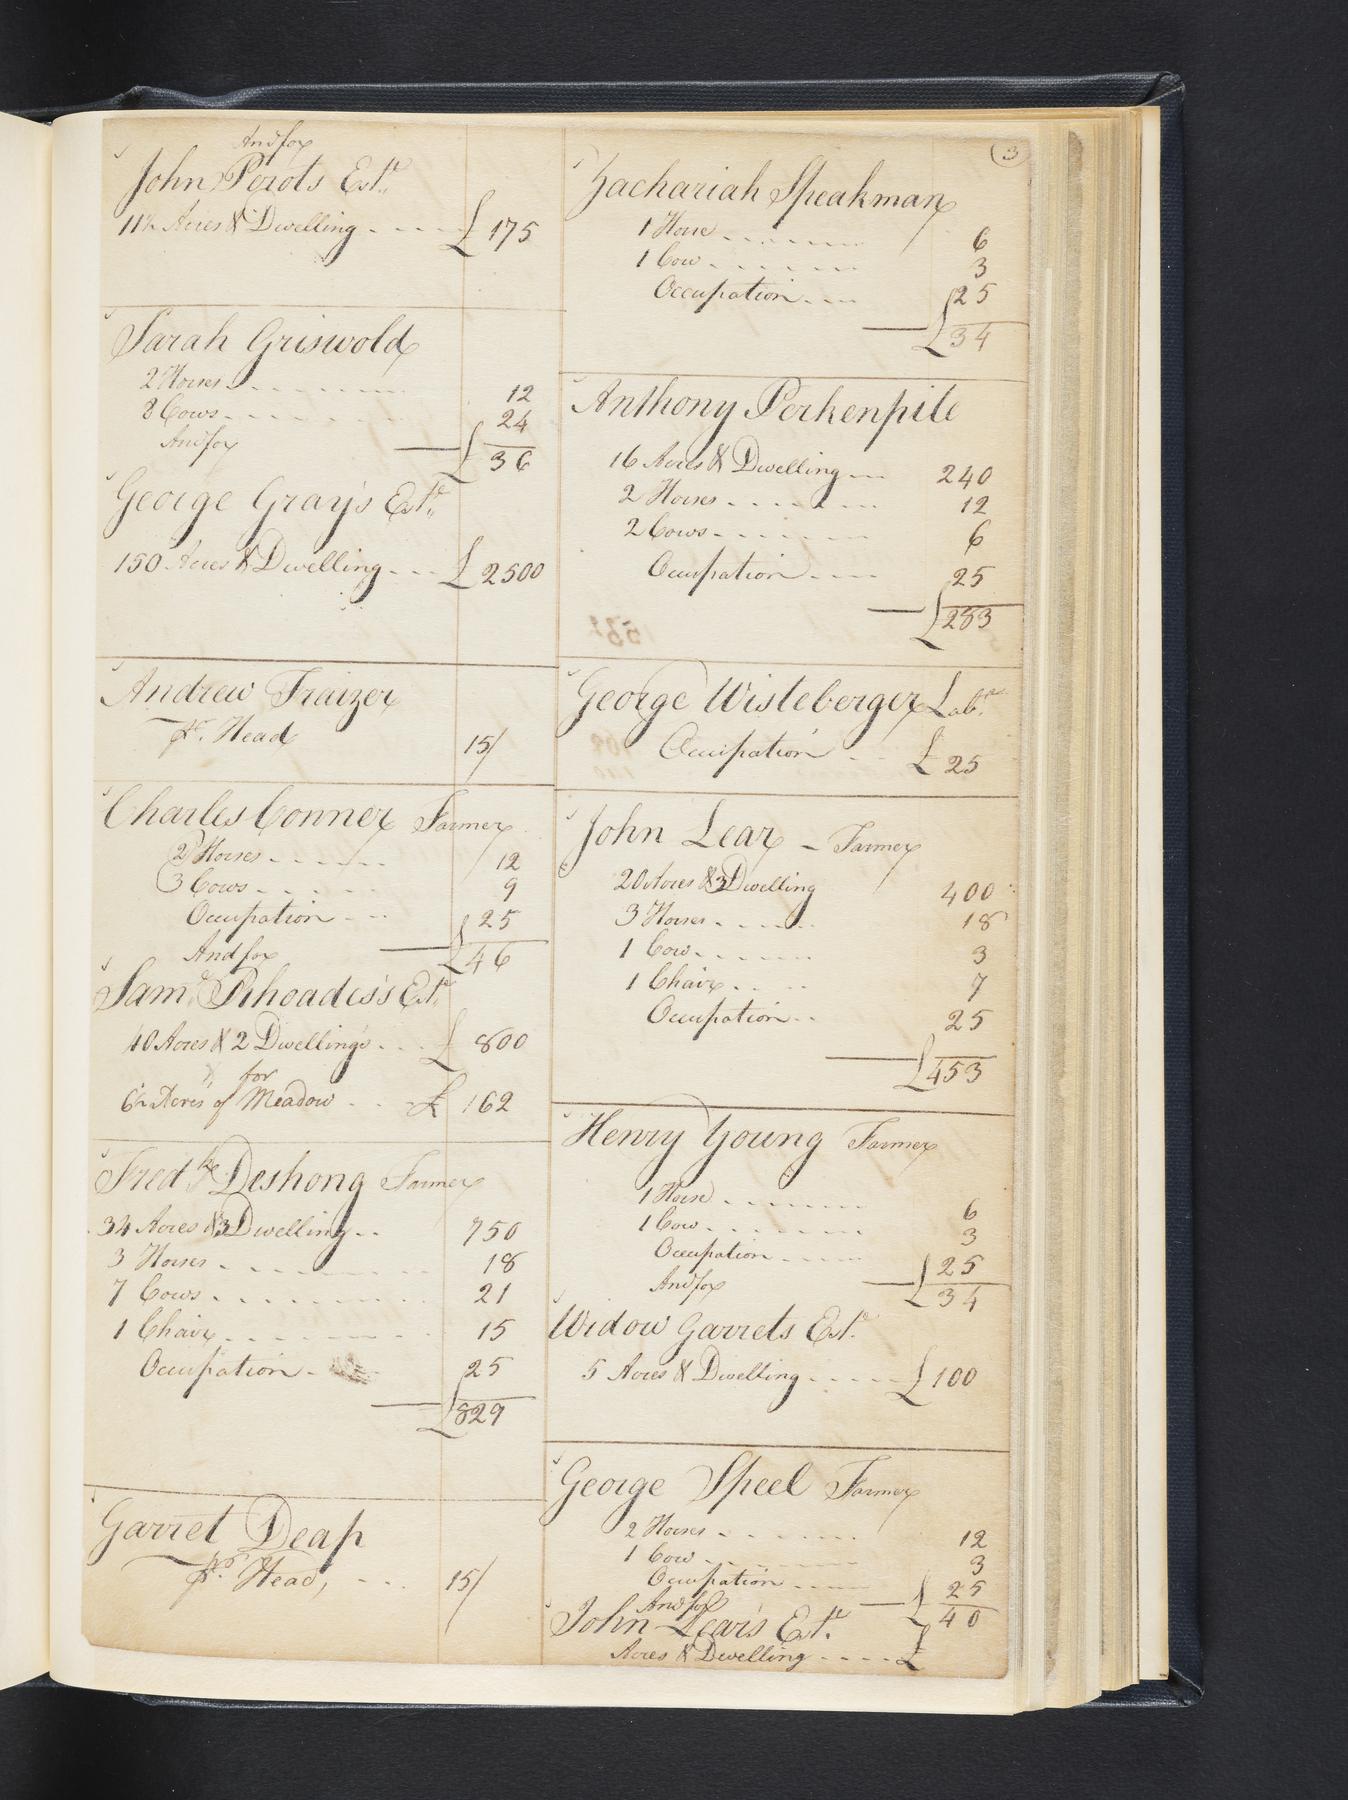 And for
John Perots Estt.
11½ Acres & Dwelling - - - - £ 175
Sarah Griswold
2 Horses - - - - - - - 12
8 Cows - - - - - - 24
And for £ 36
George Gray's Estt.
150 Acres & Dwelling - - - £ 2500
Andrew Fraizer
pr. Head 15/
Charles Conner Farmer
2 Horses - - - - - - 12
3 Cows - - - - - 9
Occupation - - - 25
And for £ 46
Saml. Rhoades's Estt.
40 Acres & 2 Dwellings - - - £ 800
for
6½ Acres of Meadow - - - £ 162
Fredke. Deshong Farmer
34 Acres & 3 Dwelling - - 750
3 Horses - - - - - - - - 18
7 Cows - - - - - - - - 21
1 Chair - - - - - - - - 15
Occupation - 25
£ 829
Garret Deap
pr. Head, - - - 15/
3
Zachariah Speakman
1 Horse - - - - - - - 6
1 Cow - - - - - - - 3
Occupation - - - 25
£ 34
Anthony Perkenpile
16 Acres & Dwelling - - - 240
2 Horses - - - - - - - 12
2 Cows - - - - - - - 6
Occupation - - - - 25
£ 283
George Wisteberger Labr.
Occupation - - £ 25
John Lear - Farmer
20 Acres & 3 Dwelling 400
3 Horses - - - - - - 18
1 Cow - - - - - - - 3
1 Chair - - - - 7
Occupation - - 25
£ 453
Henry Young Farmer
1 Horse - - - - - - - 6
1 Cow - - - - - - - - 3
Occupation - - - - - 25
And for £ 34
Widow Garrets Estt.
5 Acres & Dwelling - - - - - £ 100
George Speel Farmer
2 Horses - - - - - - - 12
1 Cow - - - - - - - - 3
Occupation - - - - - 25
And for £ 40
John Lear's Estt.
Acres & Dwelling - - - - - £